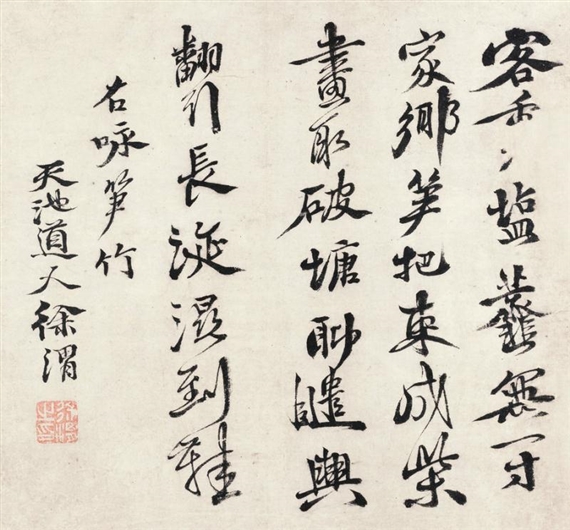 客鹽虀無一寸
家鄉笋把束成柴
畫取破塘聊遣興
翻引長涎濕到鞋
右咏笋竹
天池道人徐渭
徐渭之印